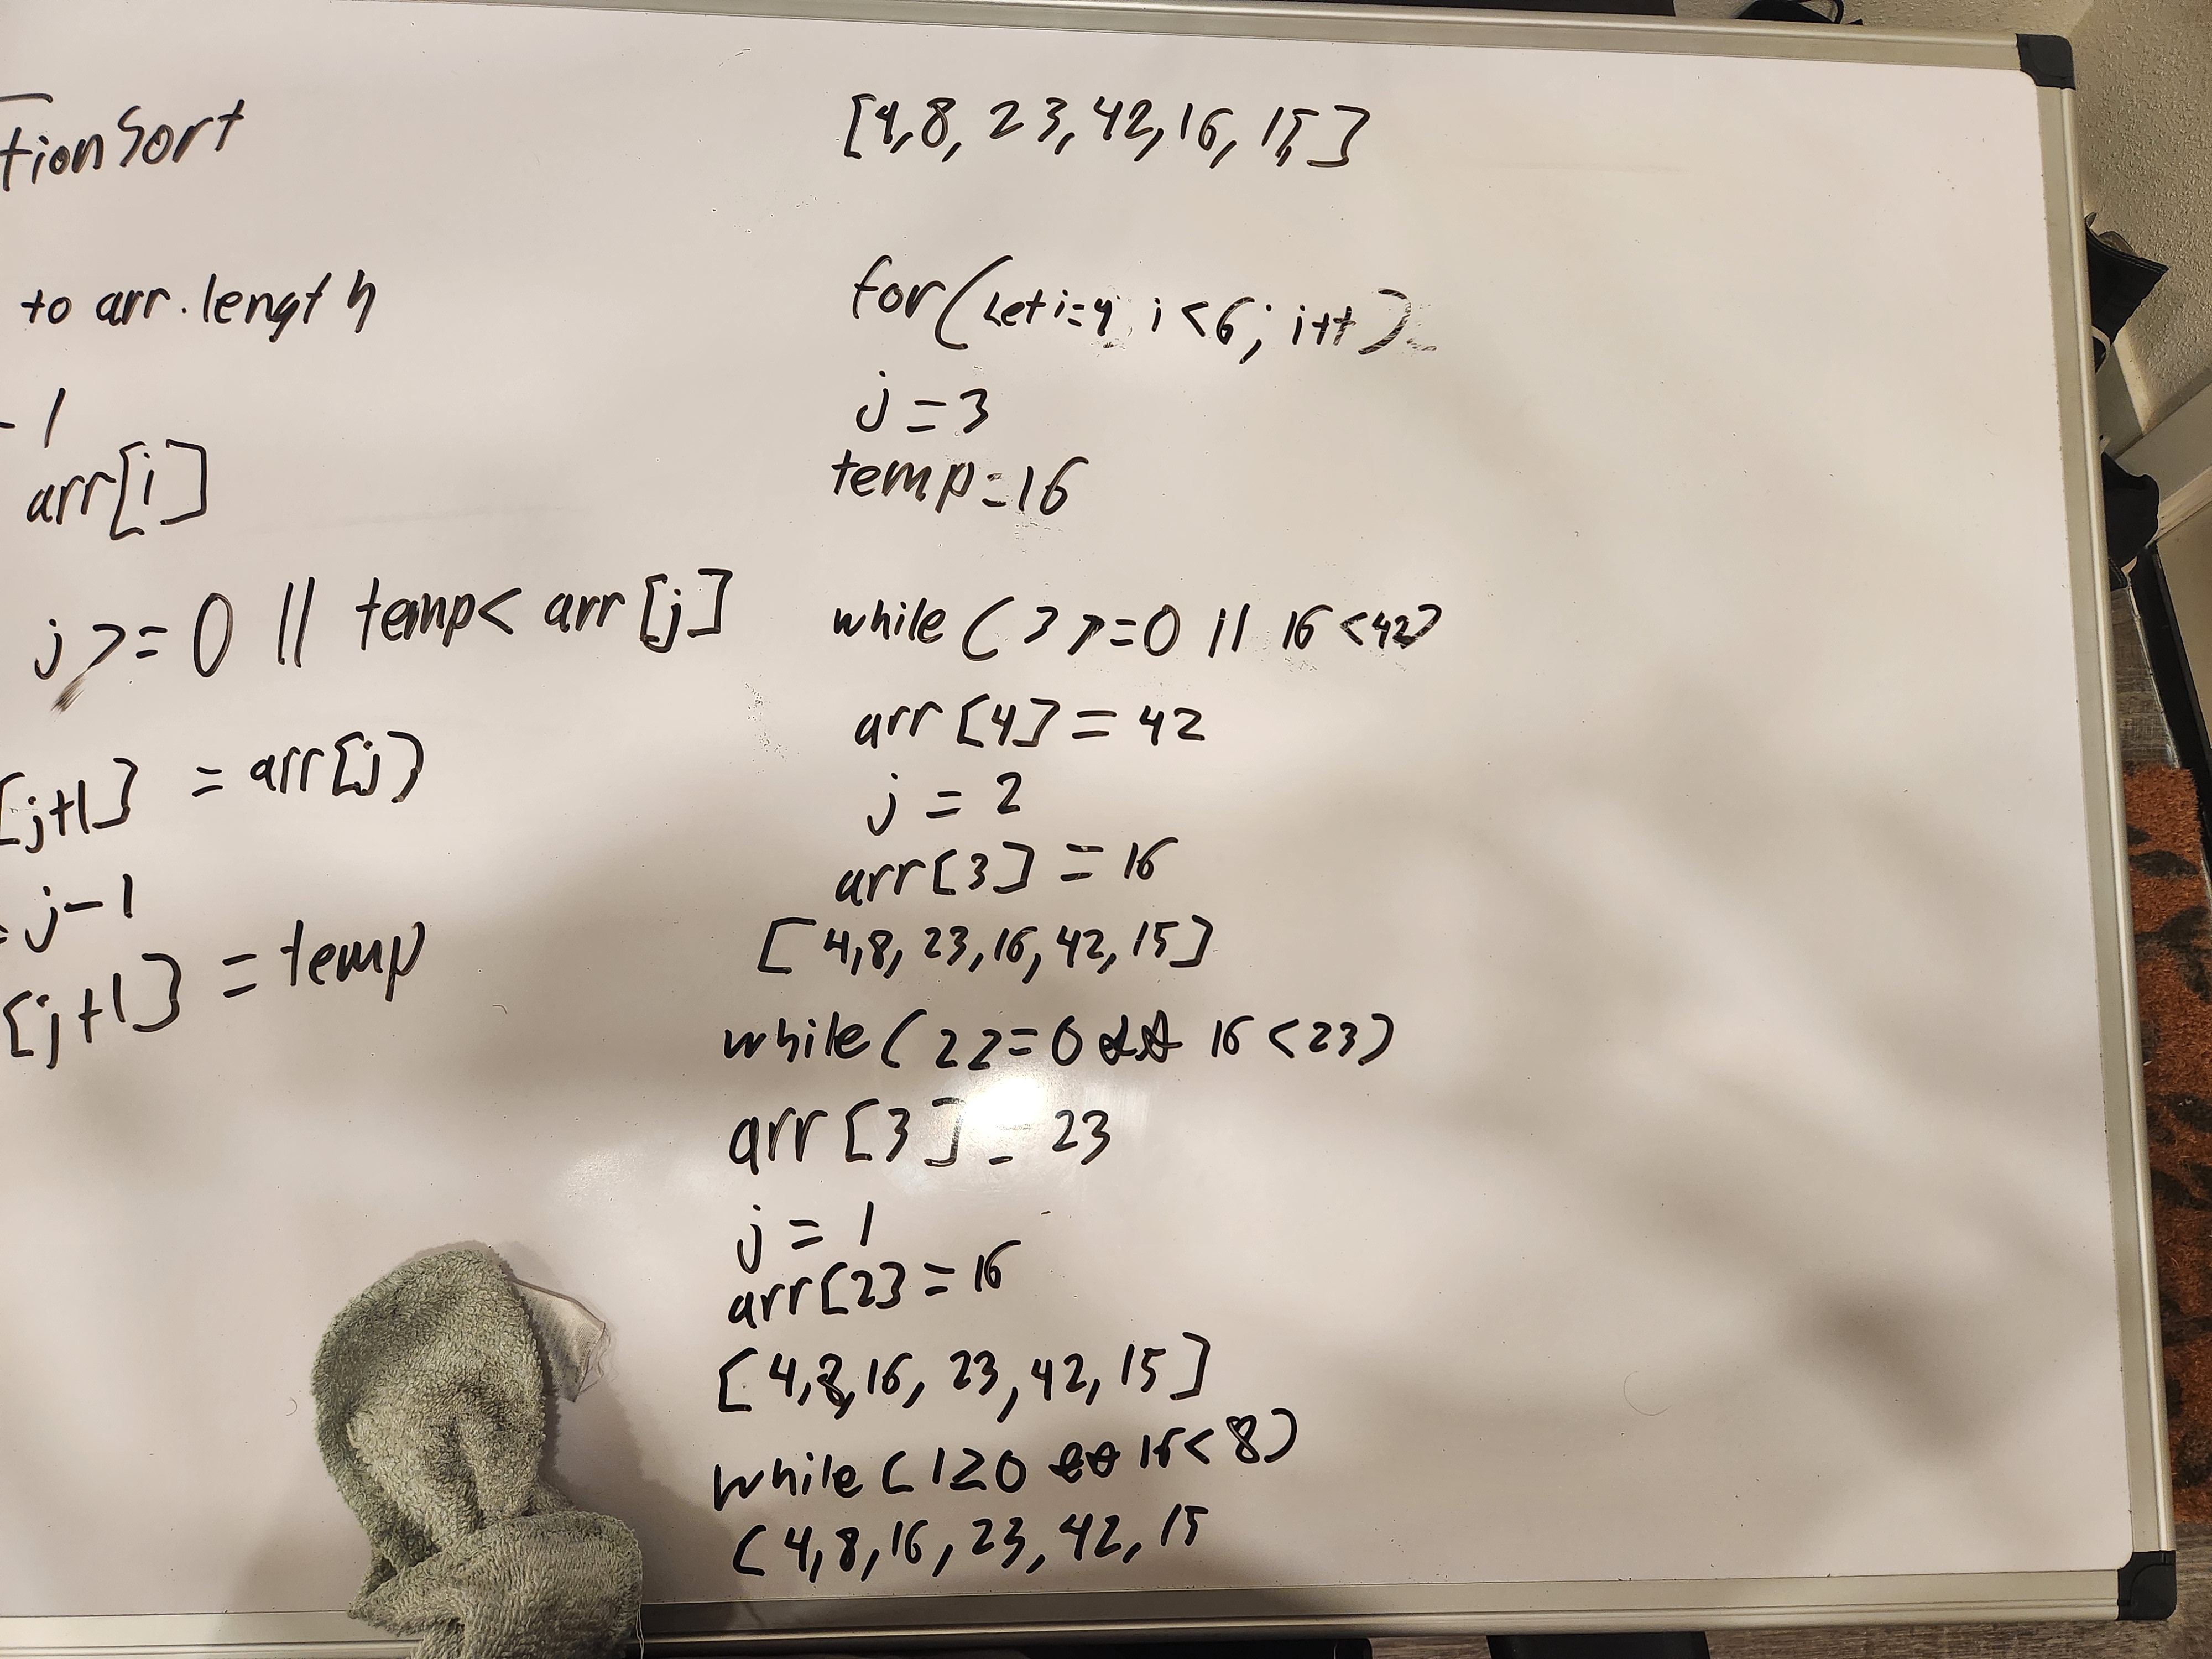 tionSort
to arr.length
- 1
arr[i]
j >= 0 || temp < arr[j]
[j+1] = arr[j]
= j - 1
[j+1] = temp
[4,8, 23, 42, 16, 15]
for(let i=4 i<6, i++)
j = 3
temp = 16
while (3 >= 0 || 16 < 42)
arr[4] = 42
j = 2
arr[3] = 16
[4,8, 23, 16, 42, 15]
while (2 >= 0 16 < 23)
arr[3] = 23
j = 1
arr[2] = 16
[4,8, 16, 23, 42, 15]
while (1 >= 0 16 < 8)
[4,8, 16, 23, 42, 15